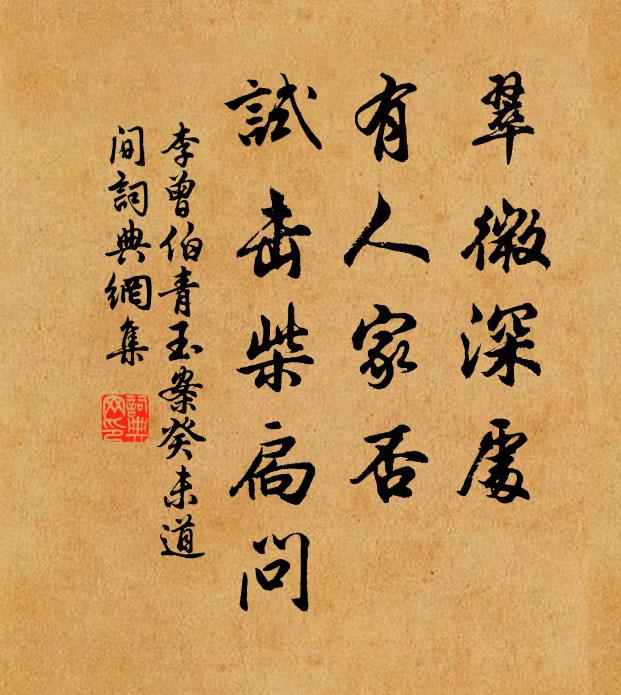 翠微深處
有人家否
試击柴扃問
李曾伯青玉案癸未道
间詞典網集
詞典
网印